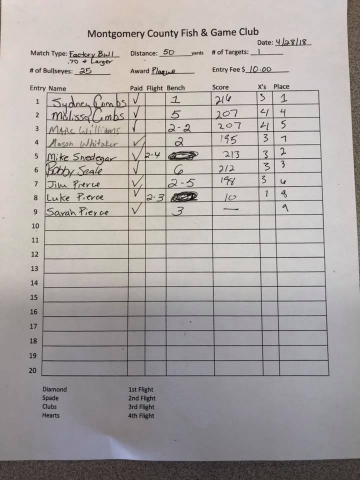 Montgomery County Fish & Game Club
Date: 4/28/18
Match Type: Factory Bull Distance: 50 yards # of Targets: 1
.70 & Larger
# of Bullseyes: 25 Award Plaque Entry Fee $ 10.00
Entry Name Paid Flight Bench Score X's Place
1 Sydney Combs ✓ 1 216 5 1
2 Melissa Combs ✓ 5 207 4 4
3 Williams ✓ 2-2 207 4 5
4 Mason Whitaker ✓ 2 195 3 7
5 Mike Snedegar ✓ 2-4 213 3 2
6 Bobby Seale ✓ 6 212 3 3
7 Jim Pierce ✓ 2-5 198 3 6
8 Luke Pierce ✓ 2-3 10 1 8
9 Sarah Pierce ✓ 3 — 9
10
11
12
13
14
15
16
17
18
19
20
Diamond 1st Flight
Spade 2nd Flight
Clubs 3rd Flight
Hearts 4th Flight